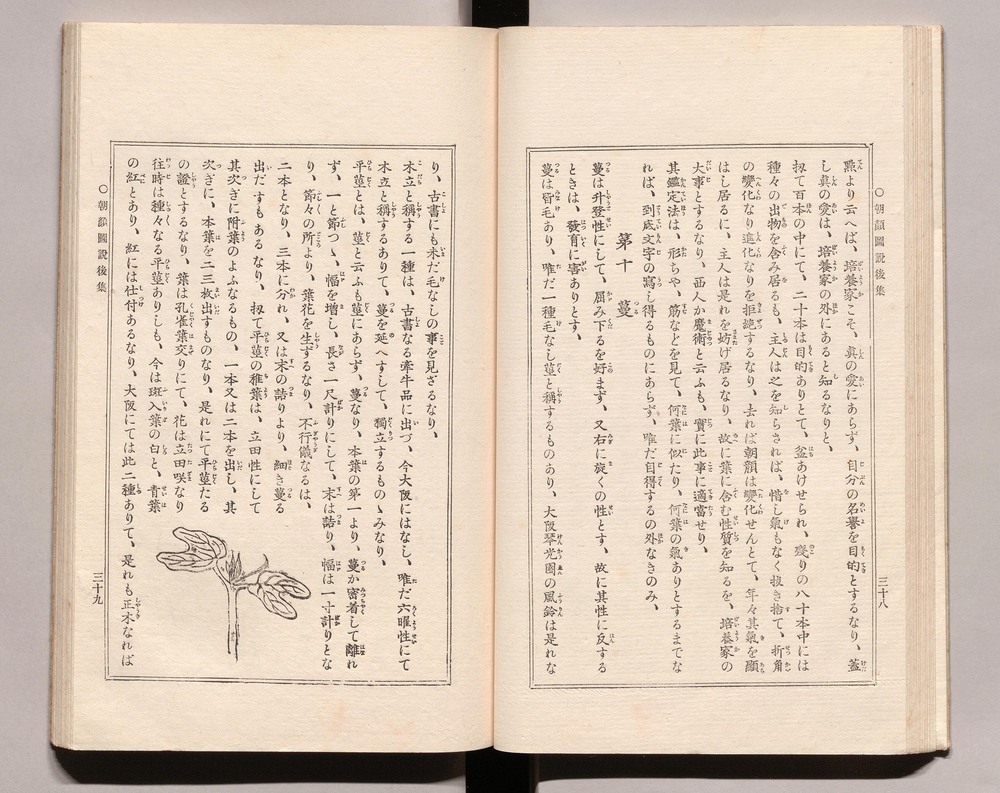 ○朝顔圖說後集
三十八
點より云へば、培養家こそ、眞の愛にあらず、自分の名譽を目的とするなり、蓋
し眞の愛は、培養家の外にあると知るなりと、
扨て百本の中にて、二十本は目的ありとて、盆あげせられ、殘りの八十本中には
種々の出物を含み居るも、主人は之を知らされば、惜し氣もなく抜き捨て、折角
の變化なり進化なりを拒絶するなり、去れば朝顔は變化せんとて、年々其氣を顯
はし居るに、主人は是れを妨げ居るなり、故に葉に含む性質を知るを、培養家の
大事とするなり、西人か魔術と云ふも、實に此事に適當せり、
其鑑定法は、形ちや、筋などを見て、何葉に似たり、何葉の氣ありとするまでな
れば、到底文字の寫し得るものにあらず、唯だ自得するの外なきのみ、
第十 蔓
蔓は升登性にして、屈み下るを好まず、又右に旋くの性とす、故に其性に反する
ときは、發育に害ありとす、
蔓は皆毛あり、唯だ一種毛なし莖と稱するものあり、大阪琴光園の風鈴は是れな
り、古書にも未だ毛なしの事を見ざるなり、
木立と稱する一種は、古書なる牽牛品に出づ、今大阪にはなし、唯だ六曜性にて
木立と稱するありて、蔓を延へすして、獨立するものゝみなり、
平莖とは、莖と云ふも莖にあらず、蔓なり、本葉の第一より、蔓か密着して離れ
ず、一と節つゝ、幅を増し、長さ一尺計りにして、末は詰り、幅は一寸計りとな
り、節々の所より、葉花を生ずるなり、不行儀なるは、
二本となり、三本に分れ、又は末の詰りより、細き蔓を
出だすもあるなり、扨て平莖の稚葉は、立田性にして
其次ぎに附葉のよふなるもの、一本又は二本を出し、其
次ぎに、本葉を二三枚出すものなり、是れにて平莖たる
の證とするなり、葉は孔雀葉交りにて、花は立田咲なり
往時は種々なる平莖ありしも、今は斑入葉の白と、青葉
の紅とあり、紅には仕付あるなり、大阪にては此二種ありて、是れも正木なれば
○朝顔圖說後集
三十九